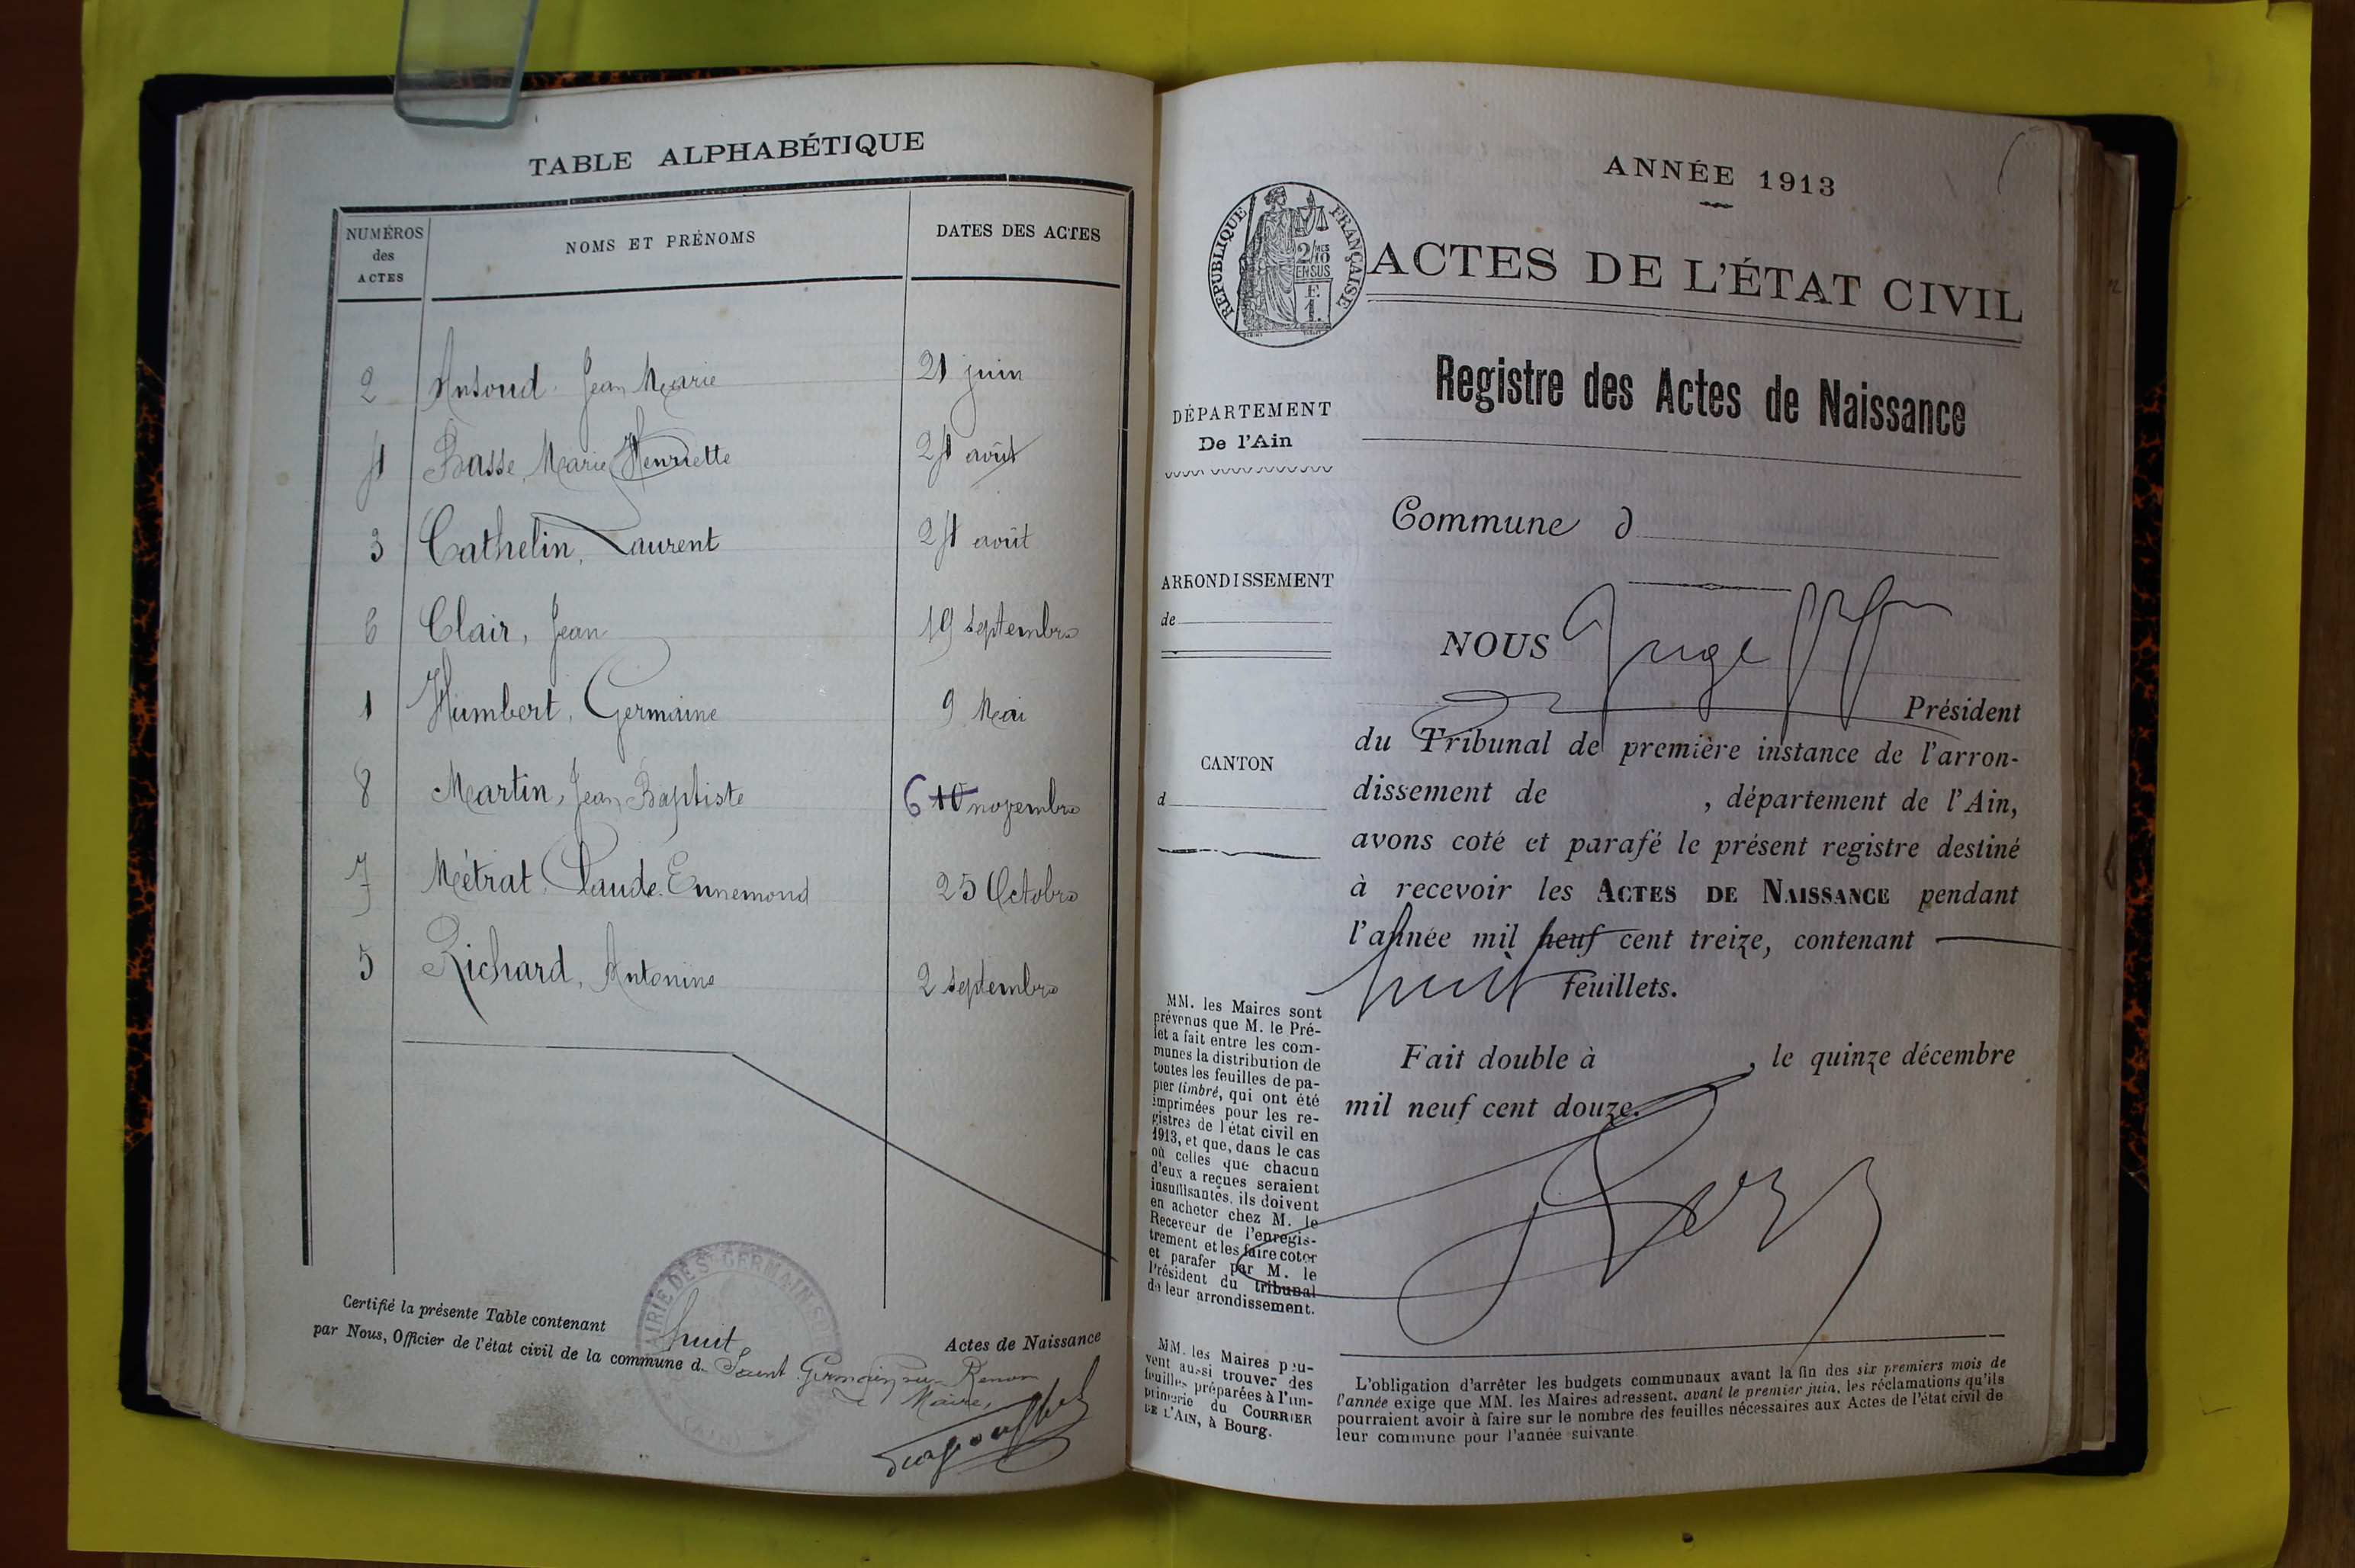 TABLE ALPHABÉTIQUE
NUMÉROS
des
ACTES
NOMS ET PRÉNOMS
DATES DES ACTES
2 Ansoud Jean Marie 21 juin
4 Basse, Marie Henriette 24 août
3 Cathelin, Laurent 24 août
6 Clair, Jean 19 septembre
1 Humbert, Germaine 9 Mai
8 Martin, Jean Baptiste 6 10 novembre
7 Métrat Claude Ennemond 25 Octobre
5 Richard, Antonine 2 septembre
Certifié la présente Table contenant huit Actes de Naissance
par Nous, Officier de l'état civil de la commune d. Saint Germain sur Renon
Maire,
MAIRIE DE ST GERMAIN S
(AIN)
ANNÉE 1913
RÉPUBLIQUE FRANÇAISE
2/MES
10
EN SUS
F.
1.
ACTES DE L'ÉTAT CIVIL
Registre des Actes de Naissance
DÉPARTEMENT
De l'Ain
Commune d
ARRONDISSEMENT
de
CANTON
d
NOUS Juge
Président
du Tribunal de première instance de l'arron-
dissement de , département de l'Ain,
avons coté et parafé le présent registre destiné
à recevoir les ACTES DE NAISSANCE pendant
l'année mil neuf cent treize, contenant
huit feuillets.
Fait double à , le quinze décembre
mil neuf cent douze.
MM. les Maires sont
prévenus que M. le Pré-
fet a fait entre les com-
munes la distribution de
toutes les feuilles de pa-
pier timbré, qui ont été
imprimées pour les re-
gistres de l'état civil en
1913, et que, dans le cas
où celles que chacun
d'eux a reçues seraient
insuffisantes, ils doivent
en acheter chez M. le
Receveur de l'enregis-
trement et les faire coter
et parafer par M. le
Président du tribunal
de leur arrondissement.
MM. les Maires peu-
vent aussi trouver des
feuilles préparées à l'im-
primerie du COURRIER
DE L'AIN, à Bourg.
L'obligation d'arrêter les budgets communaux avant la fin des six premiers mois de
l'année exige que MM. les Maires adressent, avant le premier juin, les réclamations qu'ils
pourraient avoir à faire sur le nombre des feuilles nécessaires aux Actes de l'état civil de
leur commune pour l'année suivante.